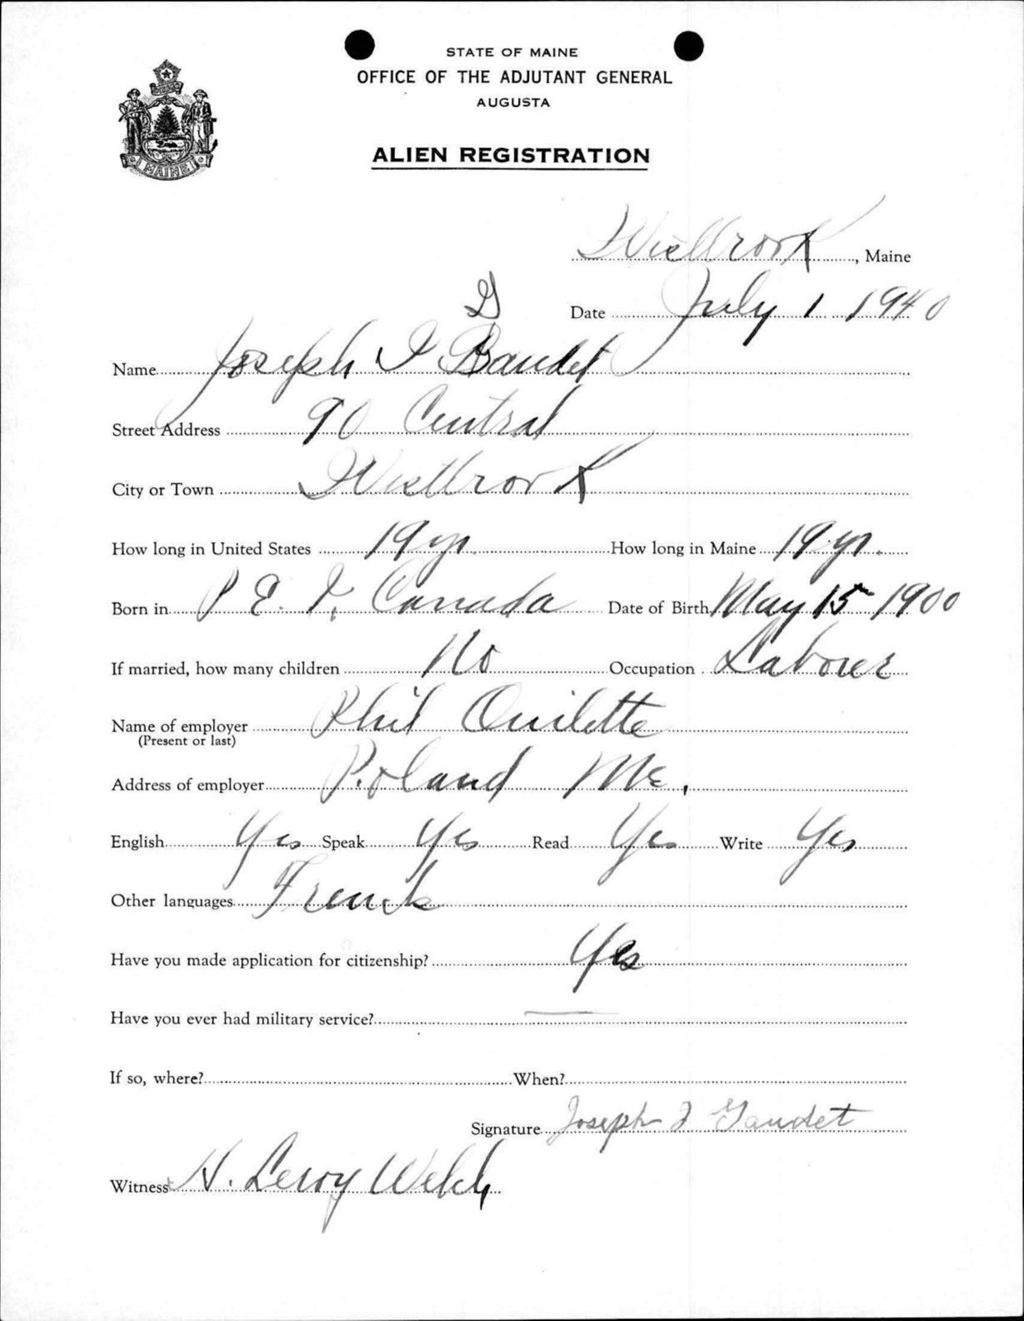 STATE OF MAINE
OFFICE OF THE ADJUTANT GENERAL
AUGUSTA
MAINE
ALIEN REGISTRATION
Westbrook, Maine
Date July 1 1940
G
Name Joseph I Baudet
Street Address 90 Central
City or Town Westbrook
How long in United States 19 yr. How long in Maine 19 yr.
Born in P E. I, Canada Date of Birth May 15 1900
If married, how many children No Occupation Laborer
Name of employer Phil Ouilette
(Present or last)
Address of employer Poland Me.
English Yes Speak Yes Read Yes Write Yes
Other languages French
Have you made application for citizenship? Yes
Have you ever had military service? —
If so, where? When?
Signature Joseph I Gaudet
Witness H. Leroy Welch